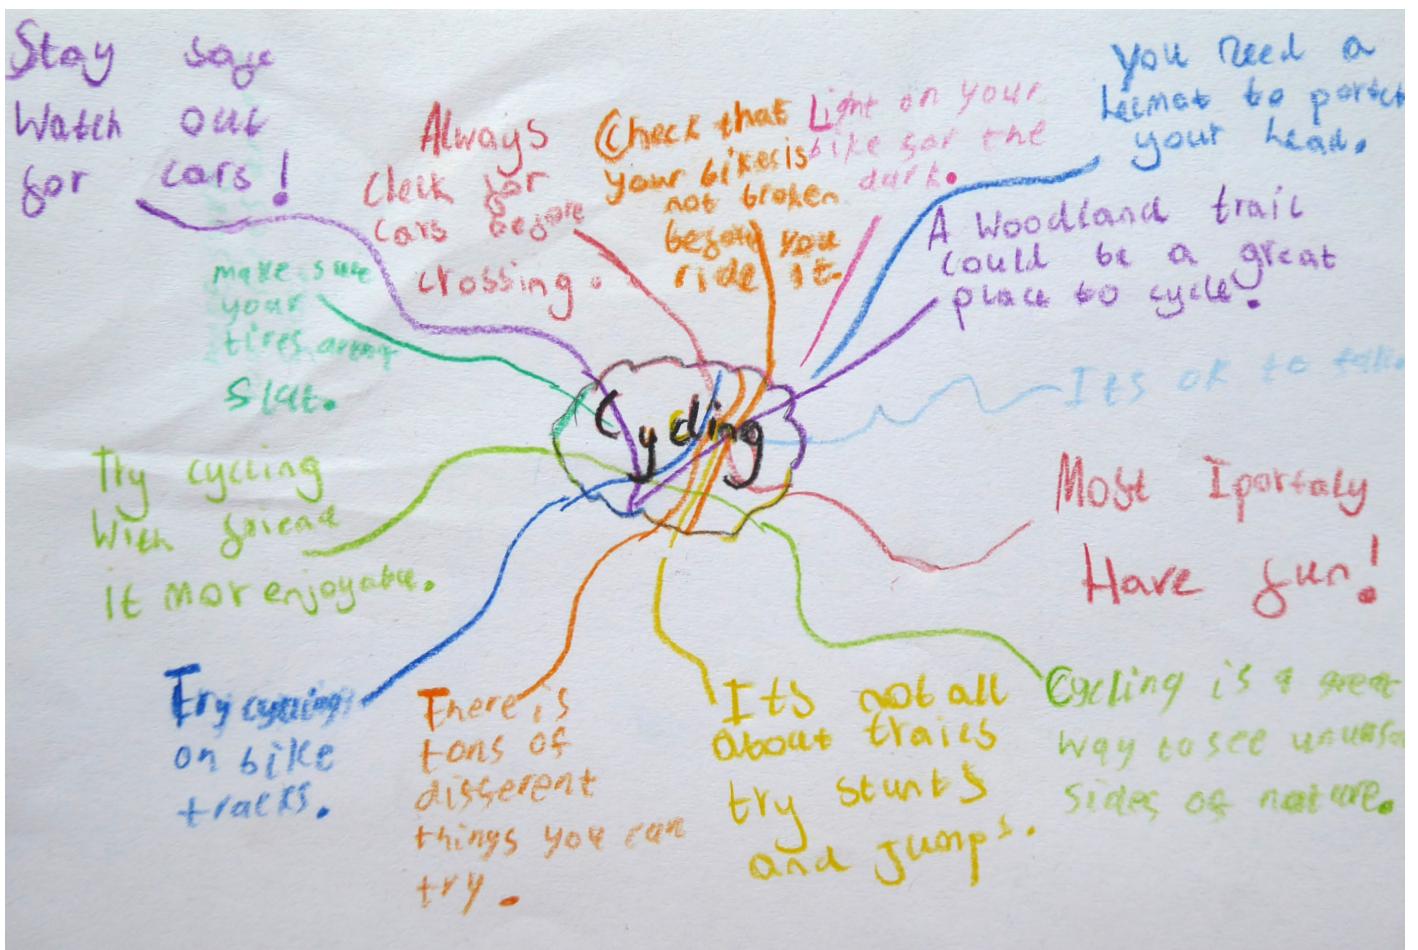 Stay safe
Watch out
for cars!
Always
check for
cars before
crossing.
Check that
your bikes is
not broken
before you
ride it.
Light on your
bike for the
dark.
you need a
helmat to portct
your head.
A woodland trail
could be a great
place to cycle.
make sure
your
tires arent
flat.
Cycling
Its ok to fall.
Try cycling
With friend
it mor enjoyable.
Most Iportaly
Have fun!
Try cycling
on bike
tracks.
There is
tons of
different
things you can
try.
Its not all
about trails
try stunts
and jumps.
Cycling is a great
way to see
sides of nature.